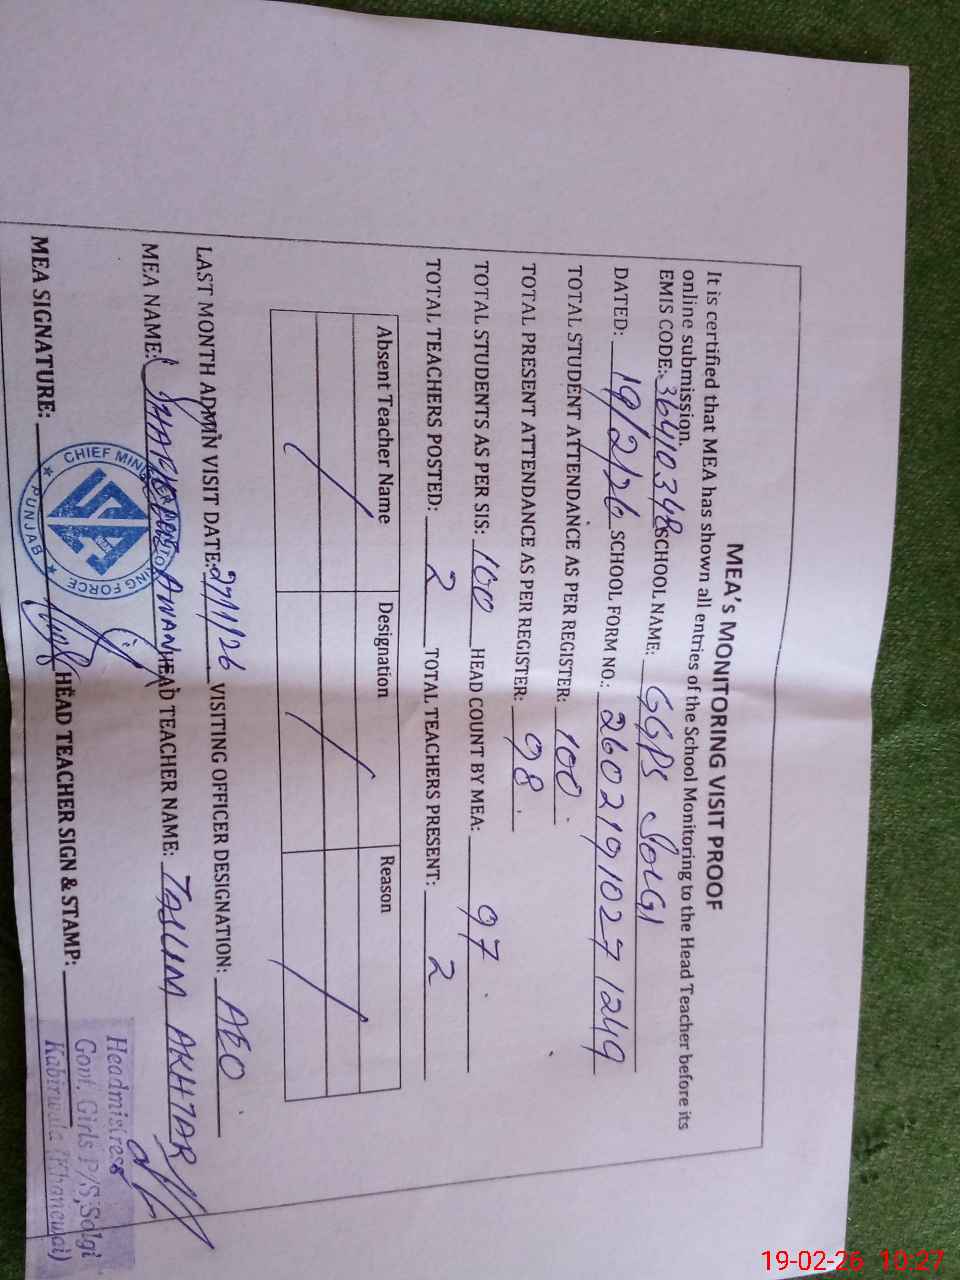 MEA's MONITORING VISIT PROOF
It is certified that MEA has shown all entries of the School Monitoring to the Head Teacher before its
online submission.
EMIS CODE: 36410348 SCHOOL NAME: GGPS SOLGI
DATED: 19/2/26 SCHOOL FORM NO.: 26021910271249
TOTAL STUDENT ATTENDANCE AS PER REGISTER: 100
TOTAL PRESENT ATTENDANCE AS PER REGISTER: 98
TOTAL STUDENTS AS PER SIS: 100 HEAD COUNT BY MEA: 97
TOTAL TEACHERS POSTED: 2 TOTAL TEACHERS PRESENT: 2
Absent Teacher Name Designation Reason
LAST MONTH ADMIN VISIT DATE: 27/1/26 VISITING OFFICER DESIGNATION: AEO
MEA NAME: AWAN HEAD TEACHER NAME: TASLIM AKHTAR
MEA SIGNATURE: HEAD TEACHER SIGN & STAMP:
CHIEF MONITORING FORCE
PUNJAB
Headmistress
Govt. Girls P/S, Solgi
Kabirwala (Khanewal)
19-02-26 10:27